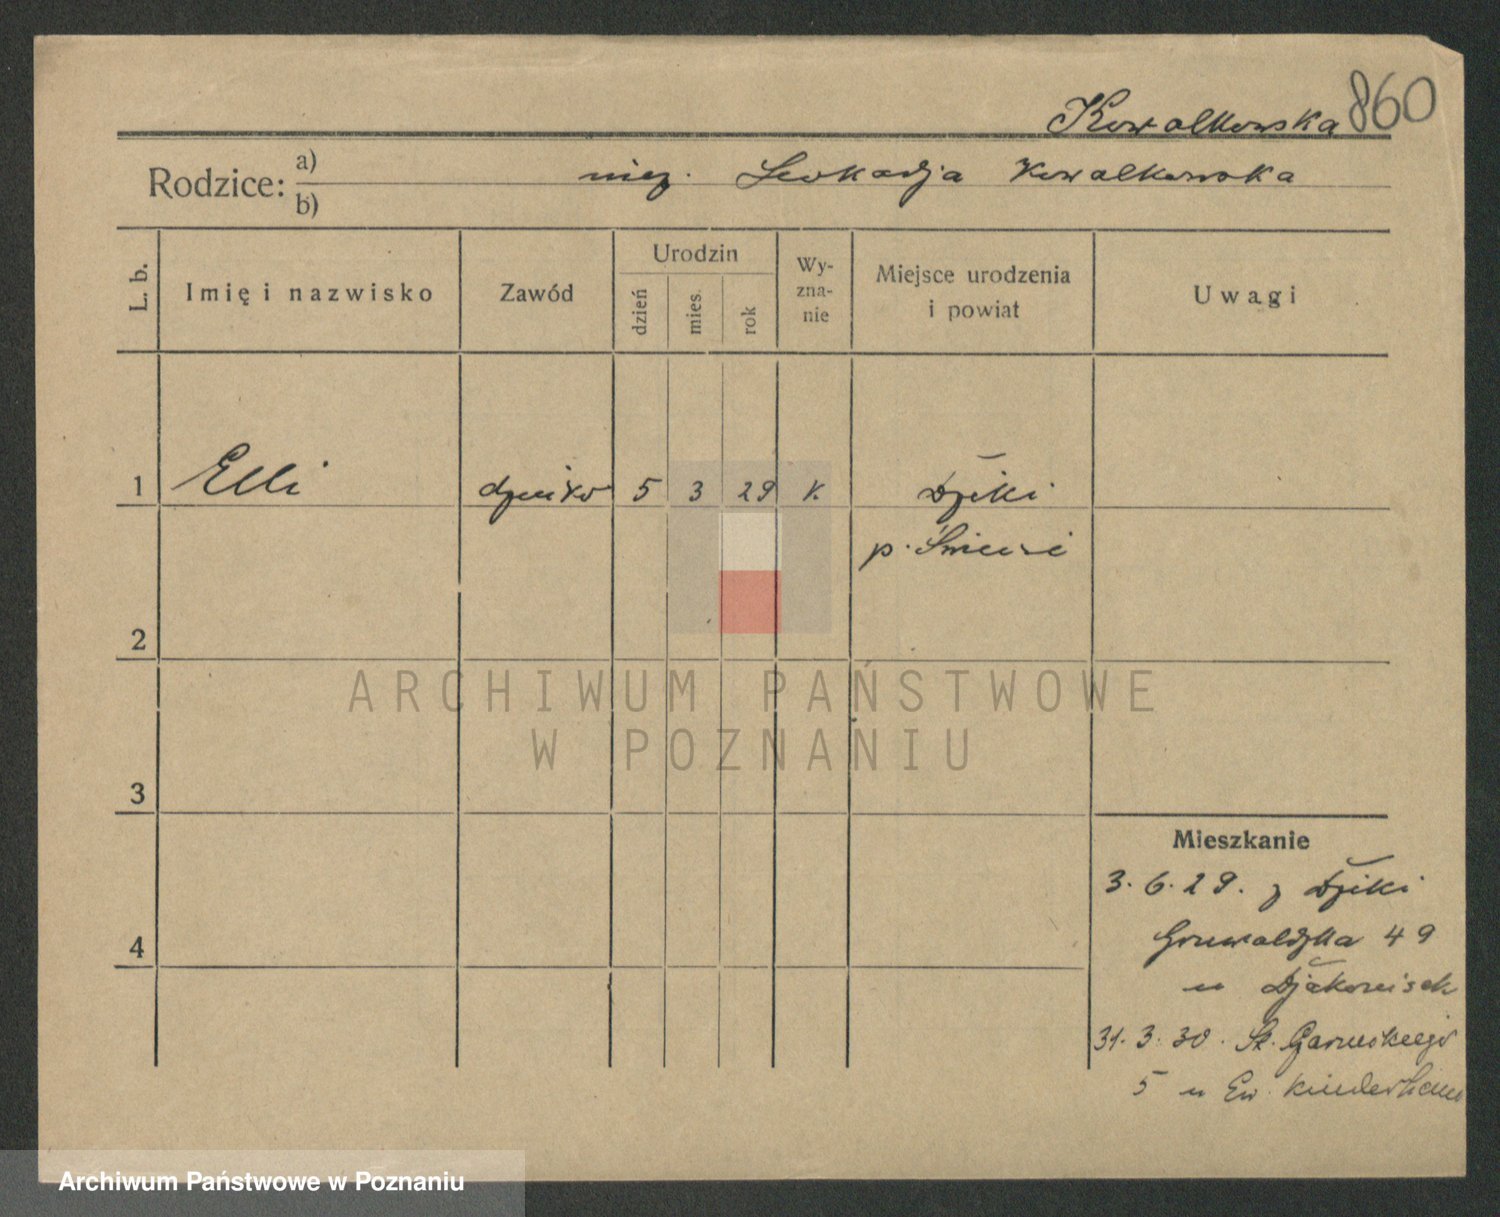 860
Kowalkowska
Rodzice: a) b) niez. Leokadja Kowalkowska
L. b. Imię i nazwisko Zawód Urodzin dzień mies. rok Wy-zna-nie Miejsce urodzenia i powiat Uwagi
1 Elli dziecko 5 3 29 k. Dziki
p. Świecie
2
3
4
Mieszkanie
3. 6. 29. z Dziki
Grunwaldzka 49
u Djakonisek
31. 3. 30. St. Czarneckiego
5 u Ew. Kinderheim
ARCHIWUM PAŃSTWOWE
W POZNANIU
Archiwum Państwowe w Poznaniu